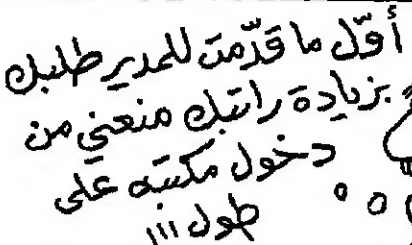 أوّل ما قدّمت للمدير طلبك
بزيادة راتبك منعني من
دخول مكتبه على
طول !!!